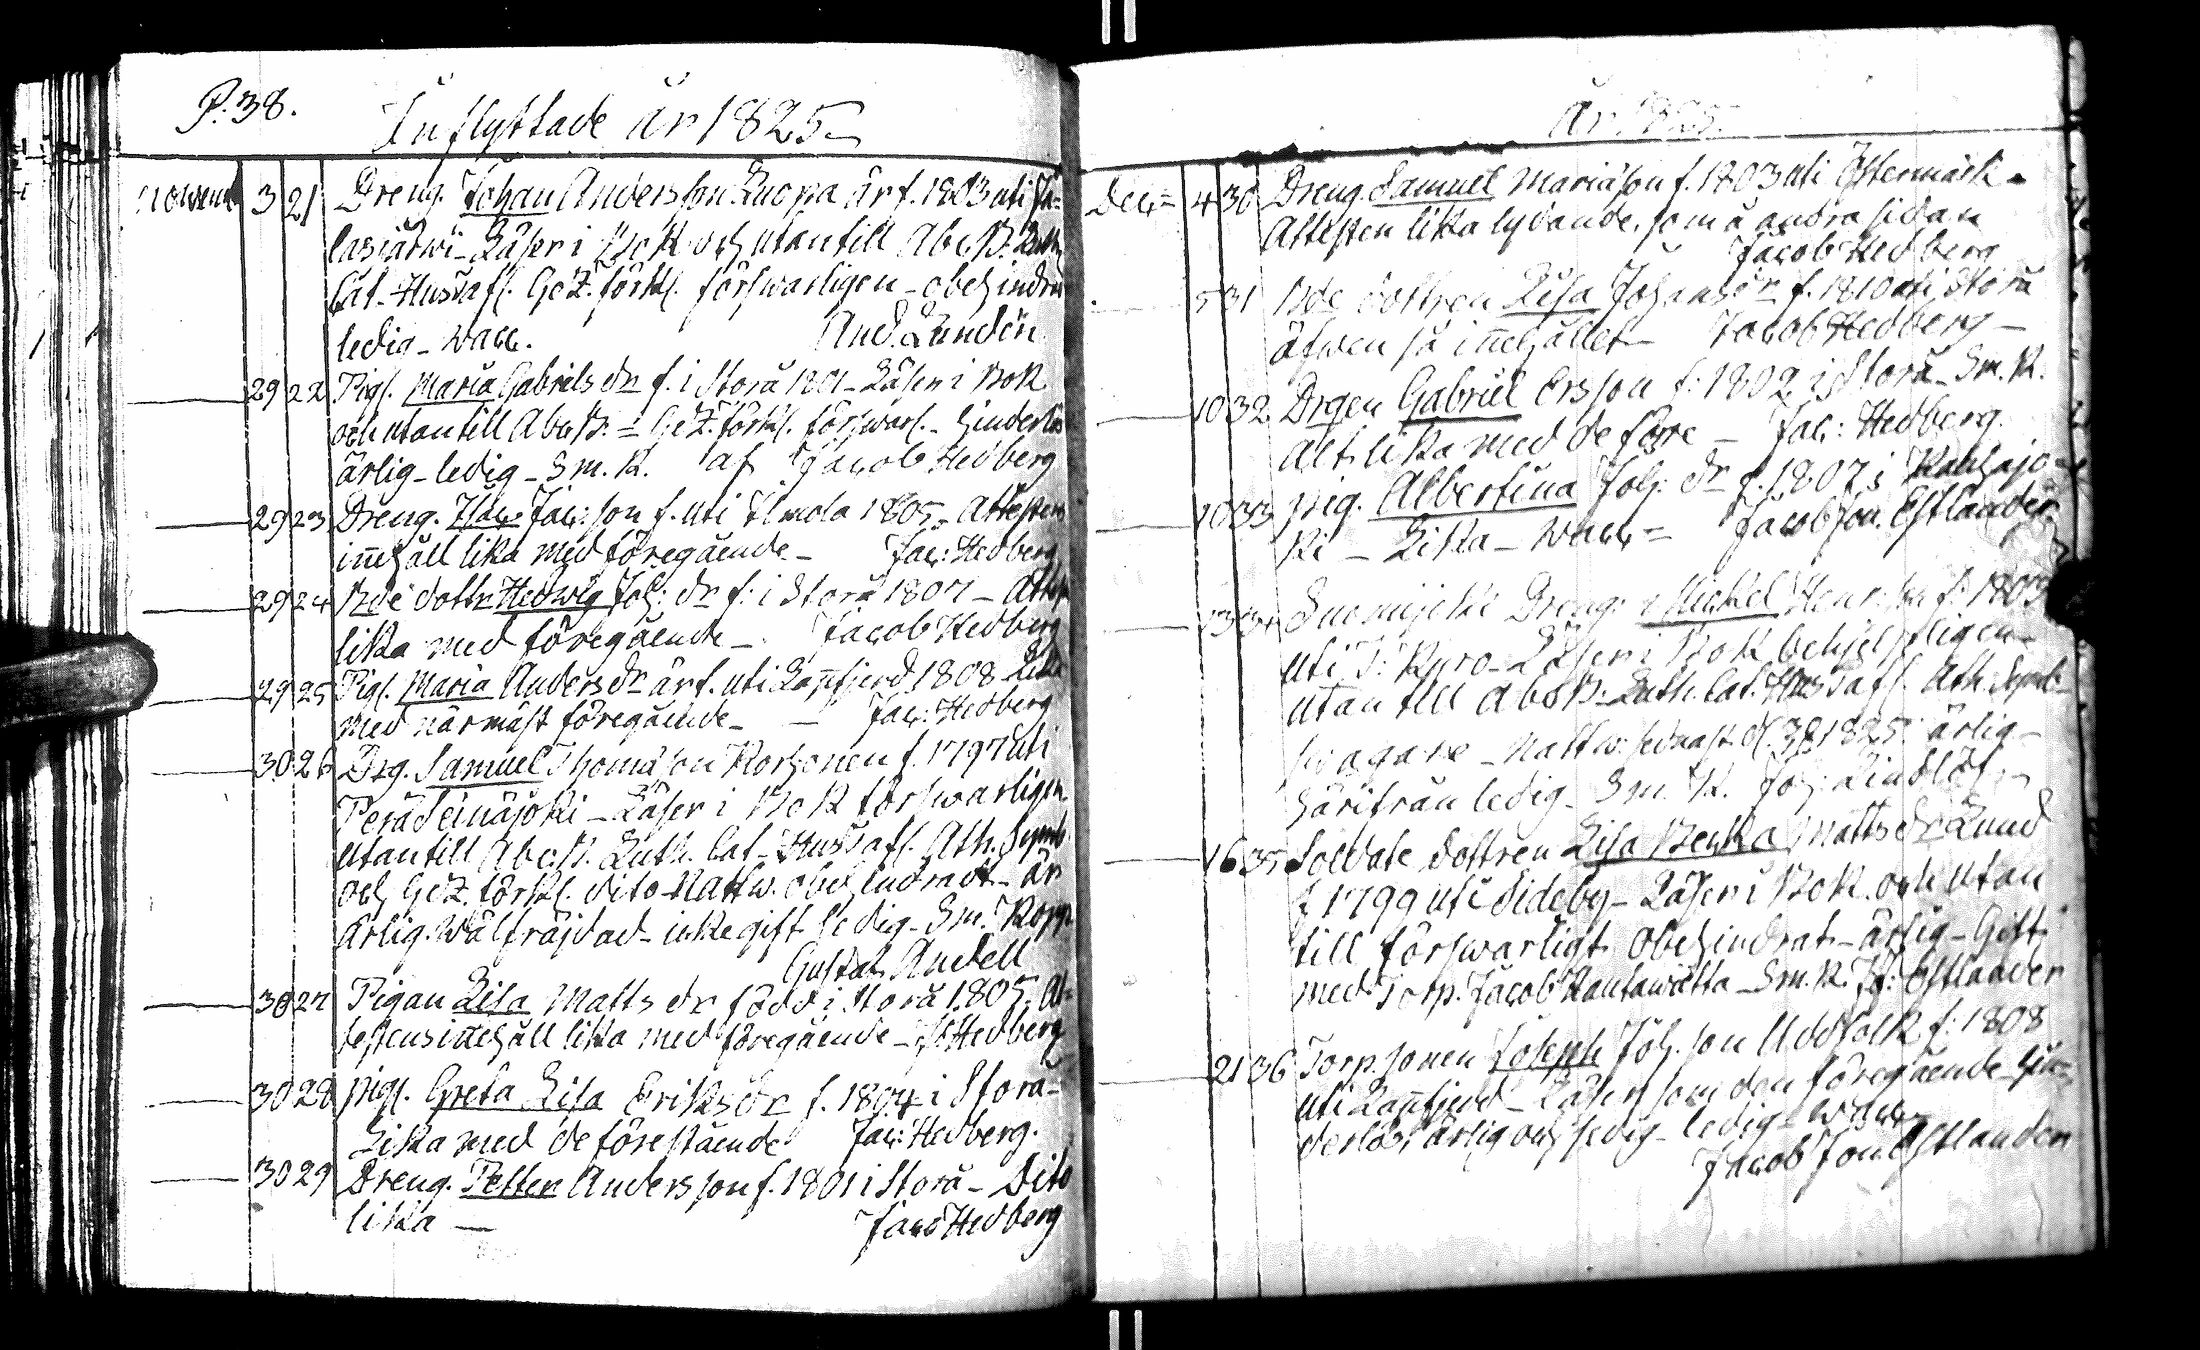 P. 38.
Inflyttade år 1825
Novemb 3 21 Dreng. Johan Andersson Luopa är f. 1803 uti Ja-
lasjärwi - Läser i Bok och utantill Abc B. Luth.
Cat. Hustafl. GeZ. förkl. förswarligen - obehindrad
ledig - Wacc. And. Lundén
29 22 Pigl. Maria Gabriels dr f. i Storå 1801 - Läser i Bok
och utantill Abc B. = GeZ. förkl. förswarl. - hinderlös
ärlig - ledig - Sm. K. af Jacob Hedberg
29 23 Dreng. Isac Jac: son f. uti Ilmola 1805 - Attestens
inehåll lika med föregående - Jac: Hedberg
29 24 Bde dottr Hedwig Joh: dr f. i Storå 1807 - Attest
lika med föregående - Jacob Hedberg
29 25 Pigl. Maria Anders dr är f. uti Lapfjerd 1808 Lika
med närmast föregående - Jac: Hedberg
30 26 Drg. Samuel Thomasson Korhonen f. 1797 uti
Peräseinäjoki - Läser i Bok förswarligen
utantill Abc B. Luth. Cat - Hustafl. Ath. Symb.
och GeZ. förkl. dito - Nattw. obehindradt - är
ärlig. Wälfräjdad - icke gift ledig - Sm. Kopp.
Gustaf Andell
30 27 Pigan Lisa Matts dr född i Storå 1805. At-
testens inehåll lika med föregående - J. Hedberg
30 28 Pigl. Greta Lisa Eriks dr f. 1804 i Storå -
Lika med de förestående Jac: Hedberg.
30 29 Dreng. Petter Andersson f. 1801 i Storå - Dito
lika - Jacob Hedberg
År 1825.
Dec = 4 30 Dreng. Samuel Mariäson f. 1803 uti Östermark -
Attesten lika lydande, som å andra sidan
Jacob Hedberg
5 31 Bde dottren Lisa Johans dr f. 1810 uti Storå
äfwen så inehållet - Jacob Hedberg -
10 32 Drgen Gabriel Ersson f. 1802 i Storå - Sm. K.
Alt lika med de förre - Jac: Hedberg.
10 33 Pig. Albertina Joh: dr f. 1807 i Kauhajo-
ki - Lika - Wacc = Jacob Jon. Estlander
13 34 Dreng: Mickel Henr: son f. 1803
uti I: Kyro - Läser i Bok behjelpligen -
utantill Abc B. Luth. Cat. Hustafl. Ath. Symb -
swagare - Nattw. sednast d. 1825. ärlig -
härifrån ledig - Sm. K. Joh: Lindlöf -
16 35 Soldate dottren Lisa Benka Matts dr Lund
f. 1799 uti Sideby - Läser i Bok och utan
till förswarligt obehindrat - ärlig - Gift
med Torp. Jacob Rantawätta - Sm. K. J. J: Estlander
21 36 Torp. sonen Joseph Joh. son Uddfolk f. 1808
uti Lapfjerd - Läser som den föregående - hin-
derlös, ärlig och sedig - ledig - Wacc
Jacob Jon. Estlander